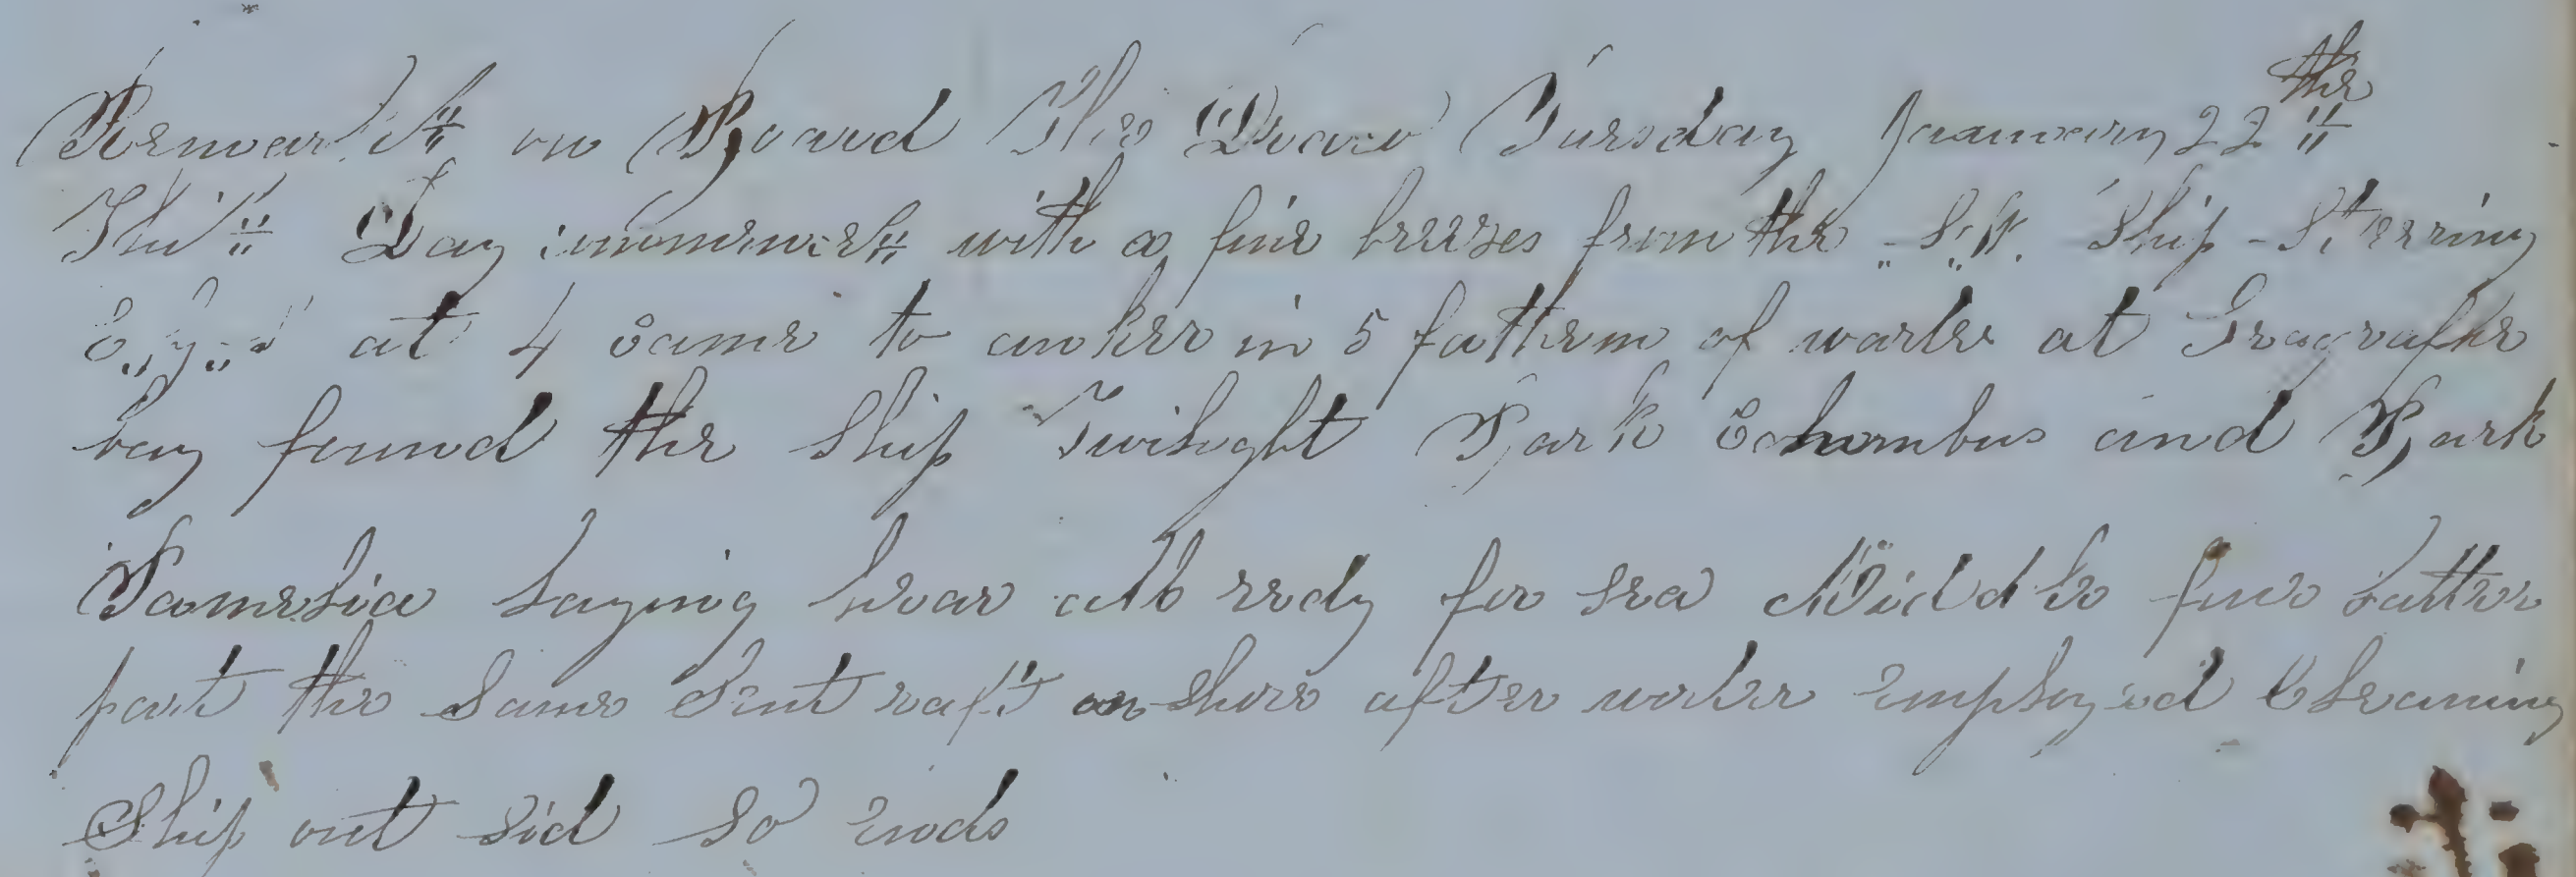 Remarks on Board The Draco Tuesday January 22 the
This Day commences with a fine breeses from the S.W. Ship Sterring
E.. at 4 came to anker in 5 fathem of warter at
bay found the Ship Twilught Bark Columbus and Bark
Pamelia laying hear all redy for sea Middle fine latter
part the Same Sent raft on shore after warter Employed Cleaning
Ship out sid So Ends